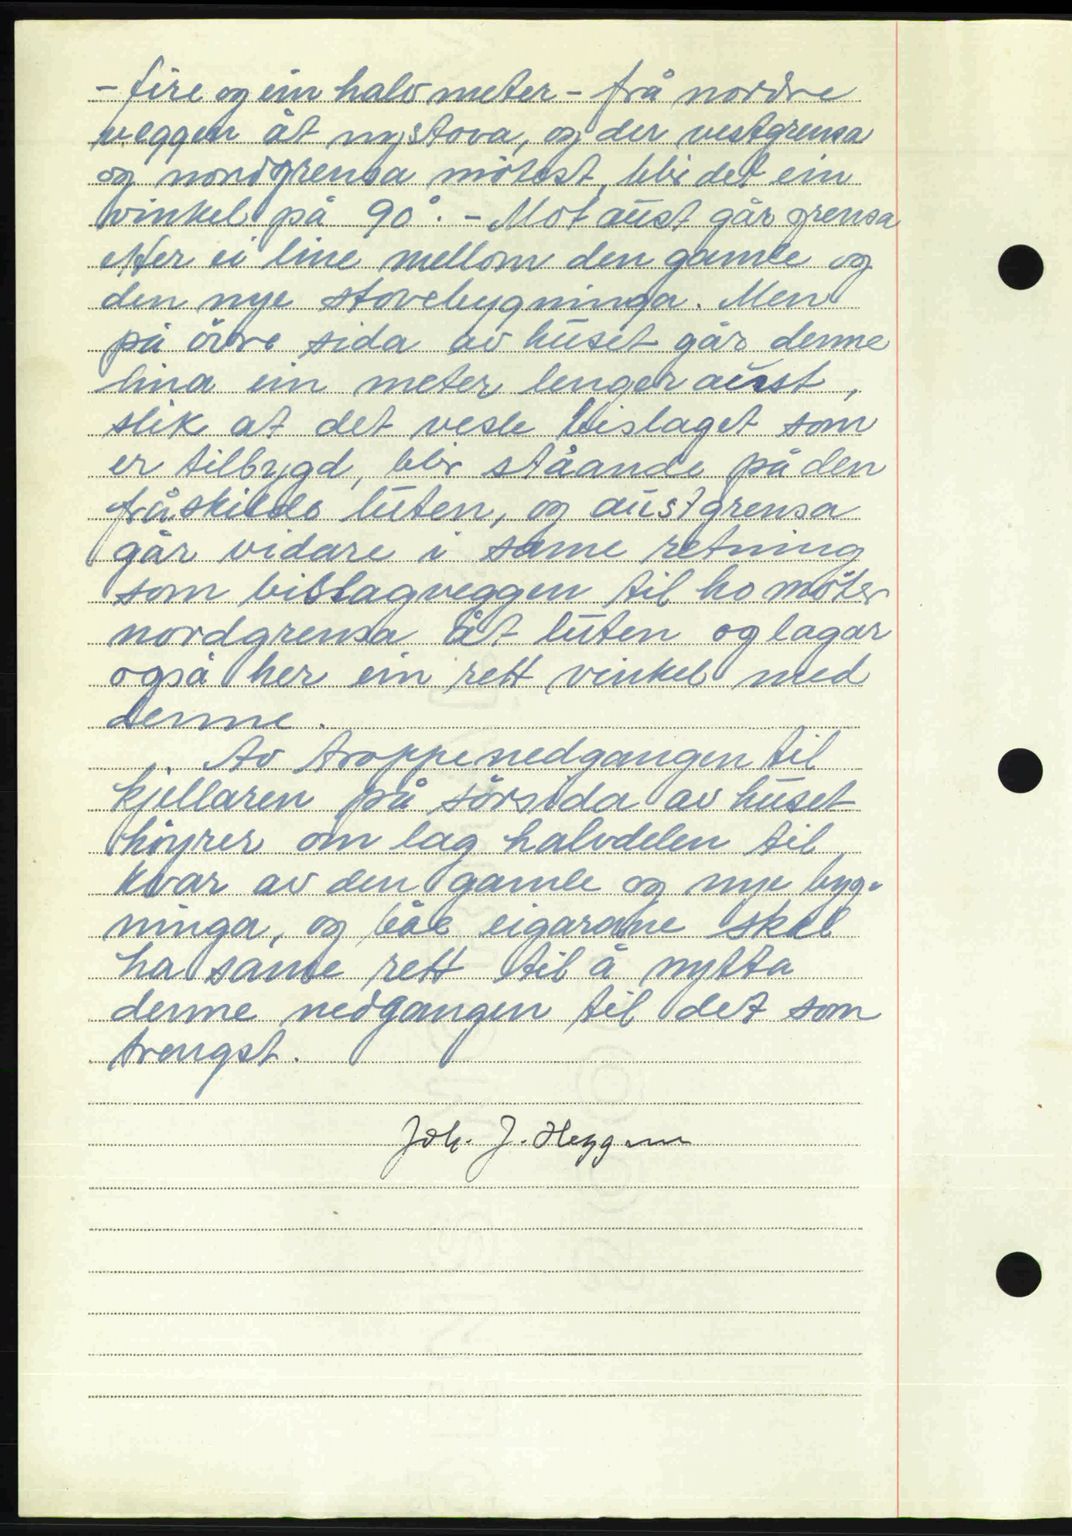 - fire og ein halv meter - frå nordre
veggen åt nystova, og der vestgrensa
og nordgrensa mötest, blir det ein
vinkel på 90°. - Mot aust går grensa
etter ei line mellom den gamle og
den nye stovebygninga. Men
på övre sida av huset går denne
lina ein meter lenger aust,
slik at det vesle bislaget som
er tilbygd, blir ståande på den
fråskilde luten, og austgrensa
går vidare i same retning
som bislagveggen til ho möter
nordgrensa åt luten og lagar
også her ein rett vinkel med
denne.
Av trappenedgangen til
kjellaren på sörsida av huset
höyrer om lag halvdelen til
kvar av den gamle og nye byg-
ninga, og båe eigarane skal
ha same rett til å nytta
denne nedgangen til det som
trengst.
Joh. J. Heggem